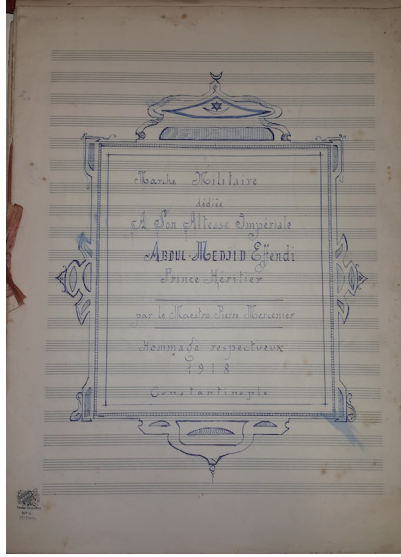 Marche Militaire
dédiée
A Son Altesse Impériale
ABDUL-MEDJID Effendi
Prince-Héritier
par le Maestro Pierre
Hommage respectueux
1918
Constantinople